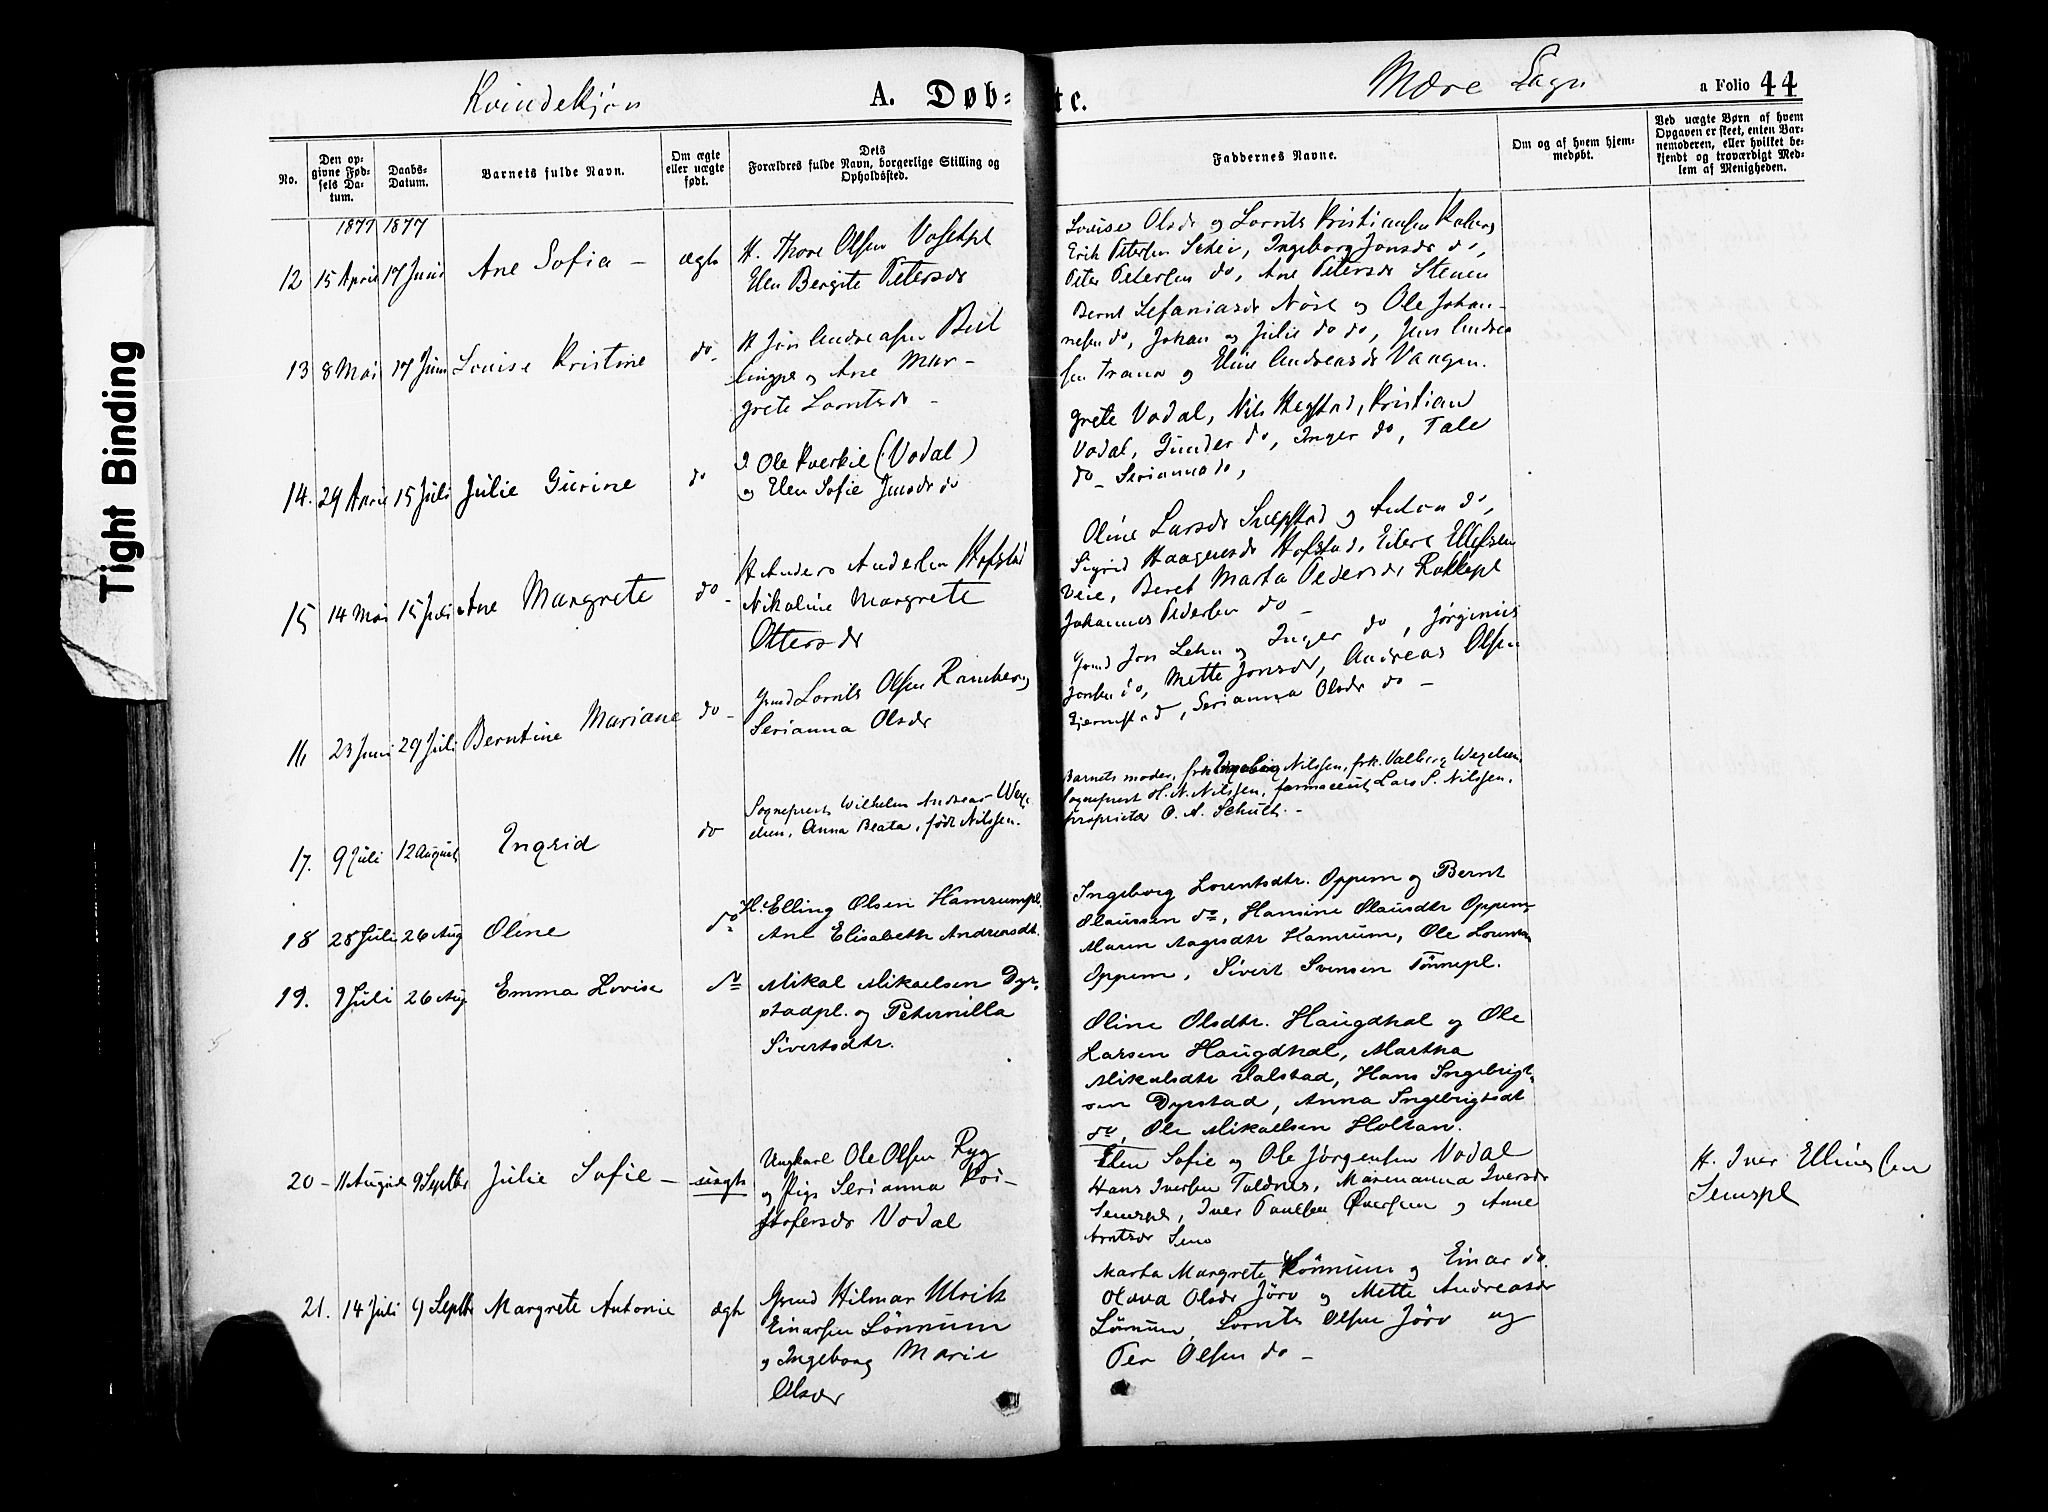 Tight Binding
Kvindekjøn
A. Døb-
te.
Mære Sogn
a Folio 44
No.
Den op-
givne Fød-
sels Da-
tum.
Daabs-
Datum.
Barnets fulde Navn.
Om ægte
eller uægte
født.
Dets
Forældres fulde Navn, borgerlige Stilling og
Opholdssted.
Faddernes Navne.
Om og af hvem hjem-
medøbt.
Ved uægte Børn af hvem
Opgaven er skeet, enten Bar-
nemoderen, eller hvilket be-
kjendt og troværdigt Med-
lem af Menigheden.
1877 1877
12 15 April 17 Juni Ane Sofia – ægte
H. Thore Olsen
Elen Bergite Petersdr
Louise Olsdr og Lornts Kristiansen
Erik Petersen Schei, Ingeborg Jonsdr do,
Peter Petersen do, Ane Petersdr Stenen
13 8 Mai 17 Juni Louise Kristine do
H Jon Andreassen Beit
lingpl og Ane Mar-
grete Lorntsdr –
Bernt Sefaniasdr og Ole Johan-
nesen do, Johan og Julie do do, Jens Andrea
sen Trana og Eline Andreasdr Vaagen.
14. 29 April 15 Juli Julie Gurine do
Ole Kverkil (Vodal)
og Elen Sofie Jensdr do
Grete Vodal, Nils Hegstad, Kristian
Vodal, Gunder do, Inger do, Tale
do – Serianna do,
15 14 Mai 15 Juli Ane Margrete do –
H Anders Andersen Hofstad
Nikoline Margrete
Ottersdr
Oline Larsdr og Anton do,
Sigrid Haagensdr Hofstad, Eilert Ellefsen
Veie, Beret Marta Pedersdr
Johannes Pedersen do –
16 23 Juni 29 Juli Berntine Mariane do –
Gmd Lornts Olsen Ramberg
Serianna Olsdr
Gmd Jon Lehn og Inger do, Jørginus
Jonsen do, Mette Jonsdr, Andreas Olsen
Gjermstad, Serianna Olsdr do –
17. 9 Juli 12 August Ingrid do
Sogneprest Wilhelm Andreas Wex-
elsen, Anna Beata, født Nilssen.
Barnets moder, frk Ingeborg Nilssen, frk. Valborg Wexelsen,
Sogneprest H. N. Nilssen, farmaceut Lars S. Nilssen,
proprietær O. A. Schult. –
18 28 Juli 26 Aug Oline do
H. Elling Olsen Hamrumpl.
Ane Elisabeth Andreasdt.
Ingeborg Lorentsdtr. Oppem og Bernt
Olaussen do, Hansine Olausdtr Oppem,
Maren Aagesdtr Hamrum, Ole Lorentsen
Oppem, Sivert Svensen Tønnepl.
19. 9 Juli 26 Aug. Emma Lovise do
Mikal Mikaelsen Dyr-
stadpl. og Peternilla
Sivertsdtr.
Oline Olsdtr. Haugdhal og Ole
Larsen Haugdhal, Martha
Mikalsdtr Dalstad, Hans Ingebrigt-
sen Dyrstad, Anna Ingebrigtsdt
do, Ole Mikaelsen Holtan.
20 – 11 August 9 Septbr Julie Sofie – uægte
Ungkarl Ole Olsen Ryg
og Pige Serianna Kri-
stofersdr Vodal
Elen Sofie og Ole Jørgensen Vodal
Hans Iversen Toldnes, Marenanna Iversdr
Semspl, Iver Paulsen og Anne
Arntsdr Sem
H. Iver Ellingsen
Semspl
21. 14 Juli 9 Septbr Margrete Antonie ægte
Gmd Hilmar Ulrik
Einarsen Lønnum
og Ingeborg Marie
Olsdr
Marta Margrete Lønnum og Einar do.
Olava Olsdr Jørv og Mette Andreasdr
Lønnum, Lornts Olsen Jørv og
Per Olsen do –